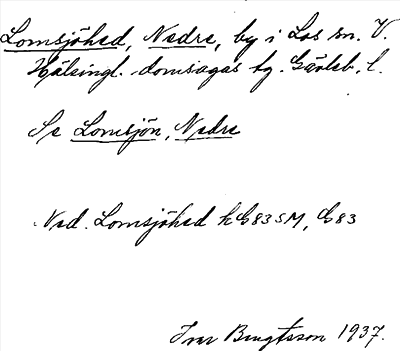 Lomsjöhed, Nedre, by i Los sn. V.
Hälsingl. domsagas tg. Gävleb. l.
Se Lomsjön, Nedre
Ned. Lomsjöhed kG83SM, G83
Ivar Bengtsson 1937.